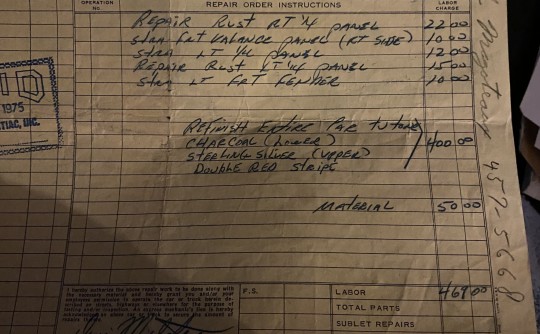 OPERATION NO.
REPAIR ORDER INSTRUCTIONS
LABOR CHARGE
REPAIR RUST RT 1/4 PANEL 22 00
STRN FRT VALANCE PANEL (RT SIDE) 10 00
STRN LT 1/4 PANEL 12 00
REPAIR RUST LT 1/4 PANEL 15 00
STRN LT FRT FENDER 10 00
REFINISH ENTIRE CAR TU TONE
CHARCOAL (LOWER) 400 00
STERLING SILVER (UPPER)
DOUBLE RED STRIPE
MATERIAL 50 00
1975
TIAC, INC.
457-5668
I hereby authorize the above repair work to be done along with
the necessary material and hereby grant you and/or your
employees permission to operate the car or truck herein de-
scribed on streets, highways or elsewhere for the purpose of
testing and/or inspection. An express mechanic's lien is hereby
acknowledged on above car or truck to secure the amount of
repairs thereto.
F.S.
LABOR 469 00
TOTAL PARTS
SUBLET REPAIRS